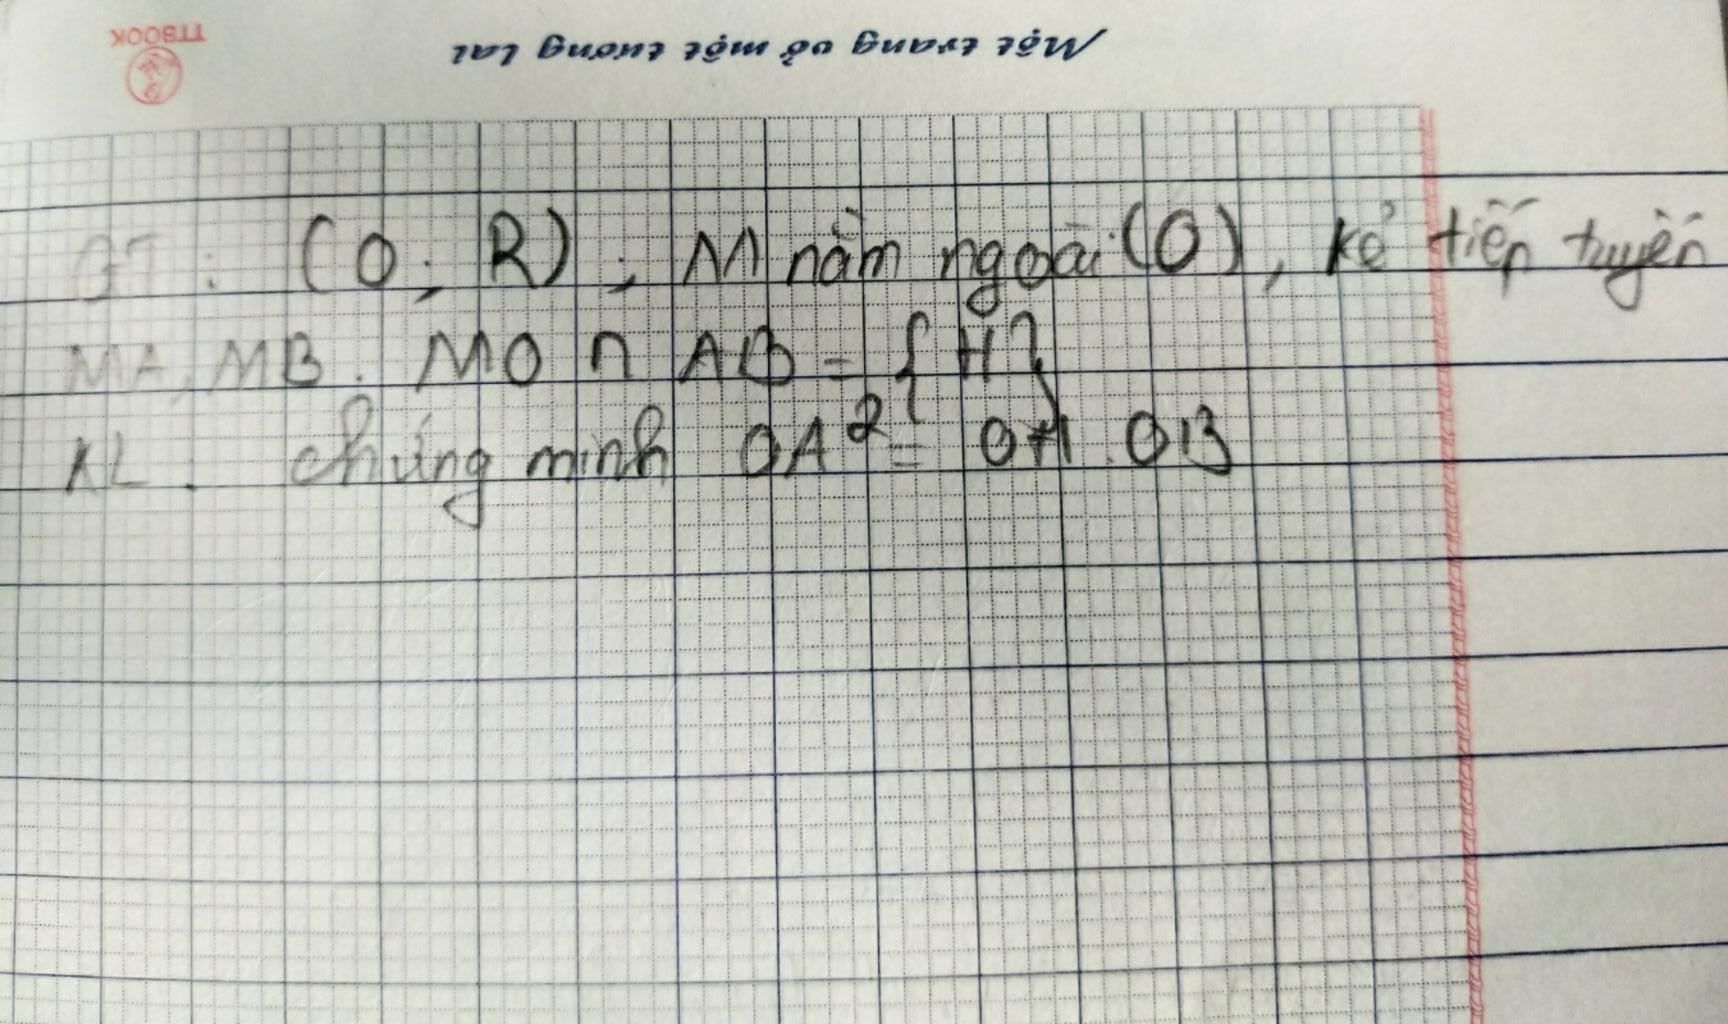 TTBOOK
Một trang vở một tương lai
GT: (O; R); M nằm ngoài (O), kẻ tiếp tuyến
MA, MB. MO ∩ AB = {H}
KL: chứng minh OA² = OH.OB